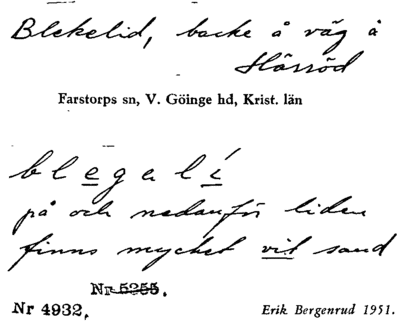 Blekelid, backe å väg å
Härröd
Farstorps sn, V. Göinge hd, Krist. län
blegalí
på och nedanför liden
finns mycket vit sand
Nr 5255.
Nr 4932,
Erik Bergenrud 1951.